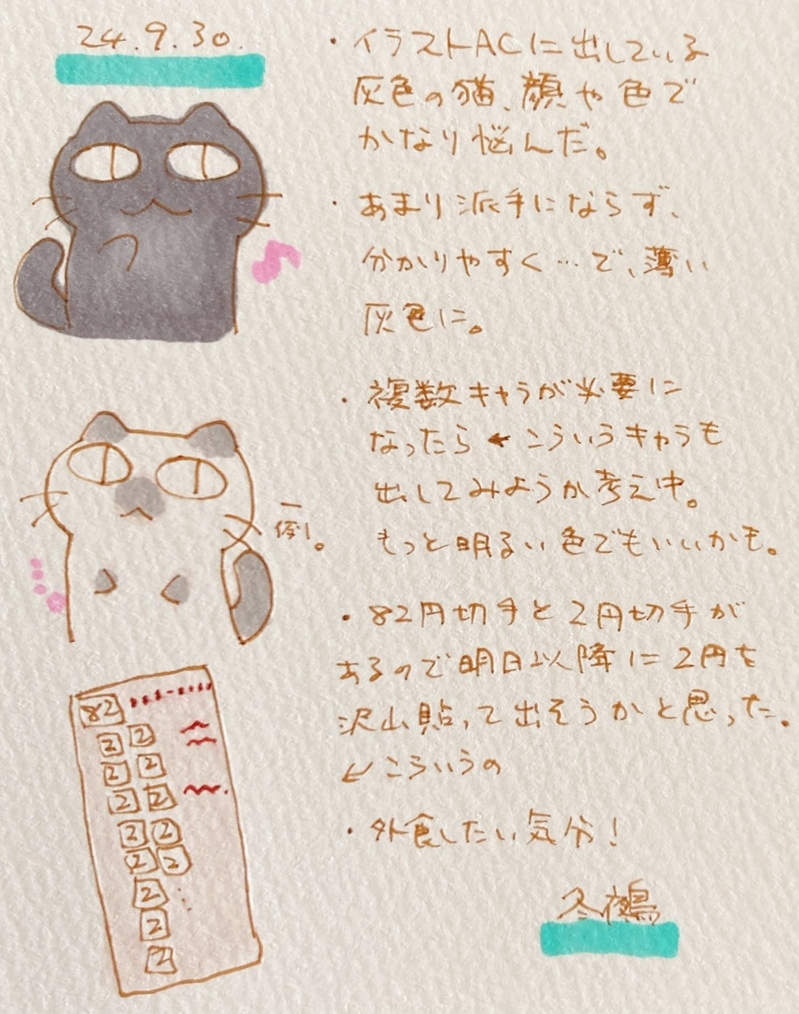 24.9.30.
・イラストACに出している
灰色の猫、顔や色で
かなり悩んだ。
・あまり派手にならず、
分かりやすく…で、薄い
灰色に。
・複数キャラが必要に
なったら←こういうキャラも
出してみようか考え中。
もっと明るい色でもいいかも。
一例。
・82円切手と2円切手が
あるので明日以降に2円を
沢山貼って出そうかと思った。
↙こういうの
・外食したい気分!
冬鵺
82
2 2
2 2
2 2
2 2
2 2
2
2
2